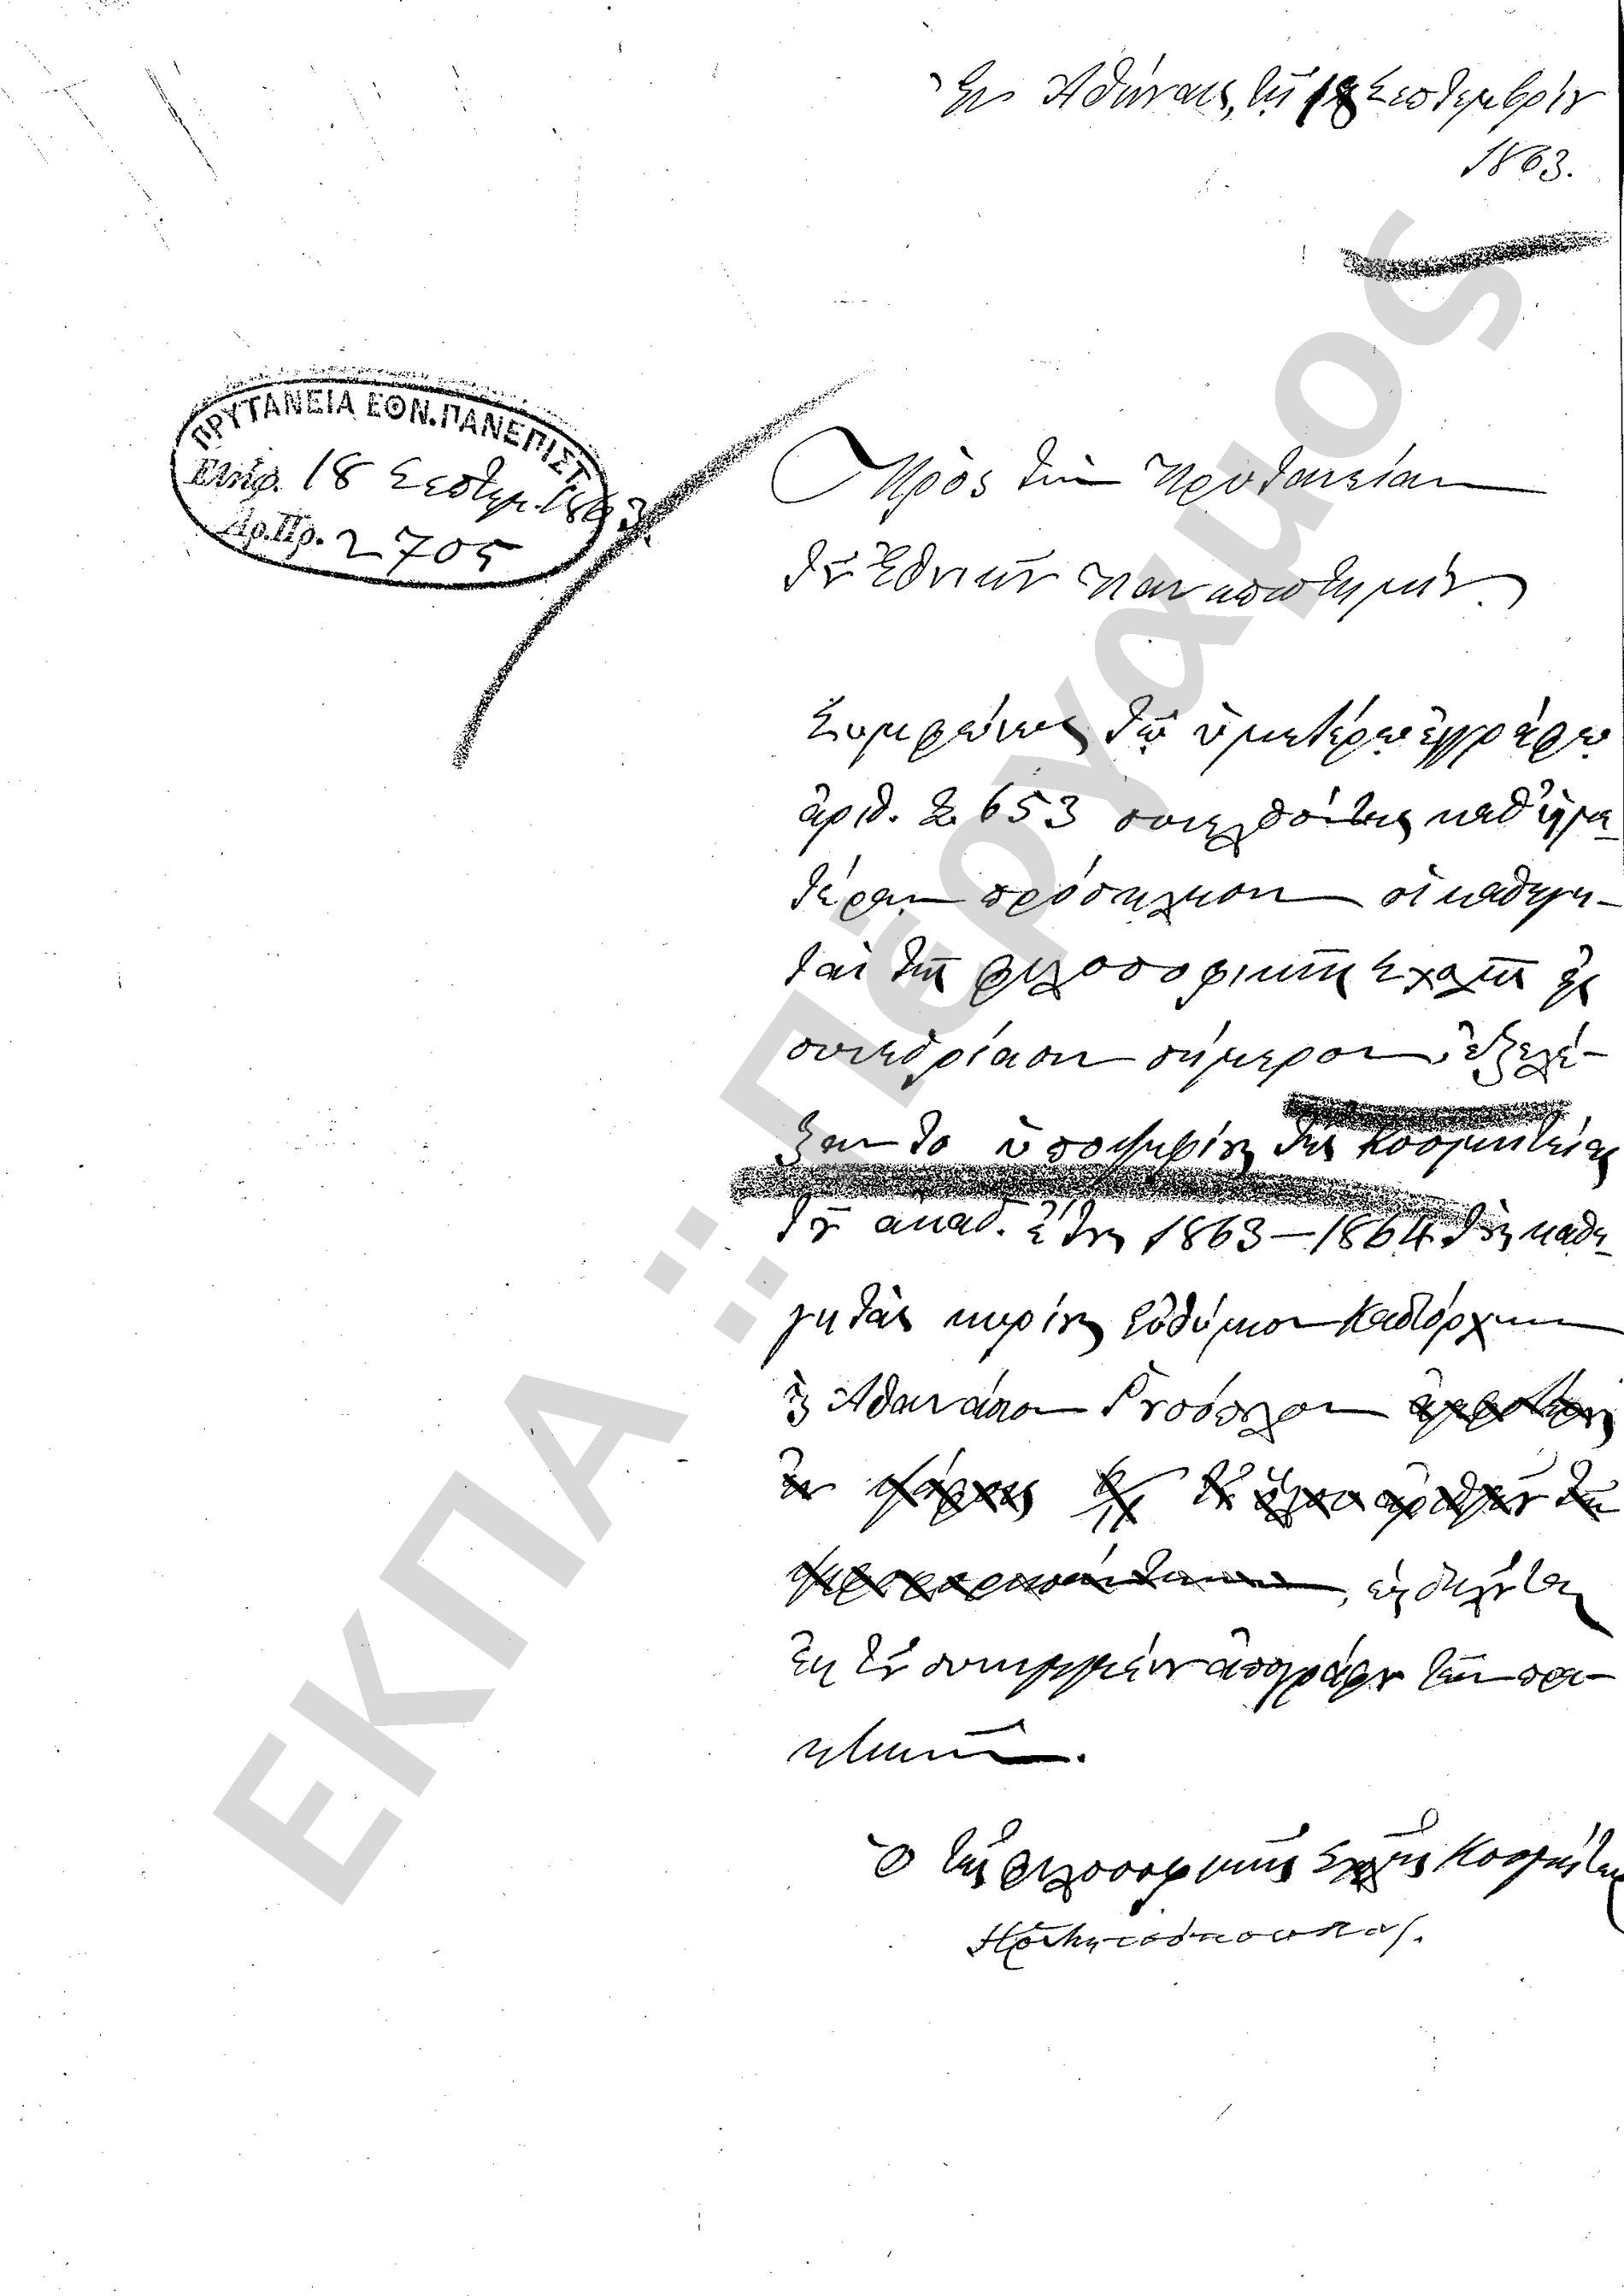 Ἐν Ἀθήναις, τῇ 18 Σεπτεμβρίου
1863.
ΠΡΥΤΑΝΕΙΑ ΕΘΝ. ΠΑΝΕΠΙΣΤ.
Ἐλήφ. 18 Σεπτεμ. 1863
Ἀρ. Πρ. 2705
Πρὸς τὴν Πρυτανείαν
τοῦ Ἐθνικοῦ Πανεπιστημίου.
Συμφώνως τῷ ὑμετέρῳ ἐγγράφῳ
ἀριθ. 2653 συνελθόντες καθ' ἡμε-
τέραν πρόσκλησιν οἱ καθηγη-
ταὶ τῆς φιλοσοφικῆς Σχολῆς εἰς
συνεδρίασιν σήμερον, ἐξελέ-
ξαντο ὑποψηφίους τῆς Κοσμητείας
τοῦ ἀκαδ. ἔτους 1863—1864 τοὺς καθη-
γητὰς κυρίους Εὐθύμιον Καστόρχην
καὶ Ἀθανάσιον Ῥουσόπουλον
ὡς δηλοῦται
ἐκ τοῦ συνημμένου ἀπογράφου τῶν πρα-
κτικῶν.
Ὁ τῆς φιλοσοφικῆς Σχολῆς Κοσμήτωρ
ΕΚΠΑ :: Πέργαμος